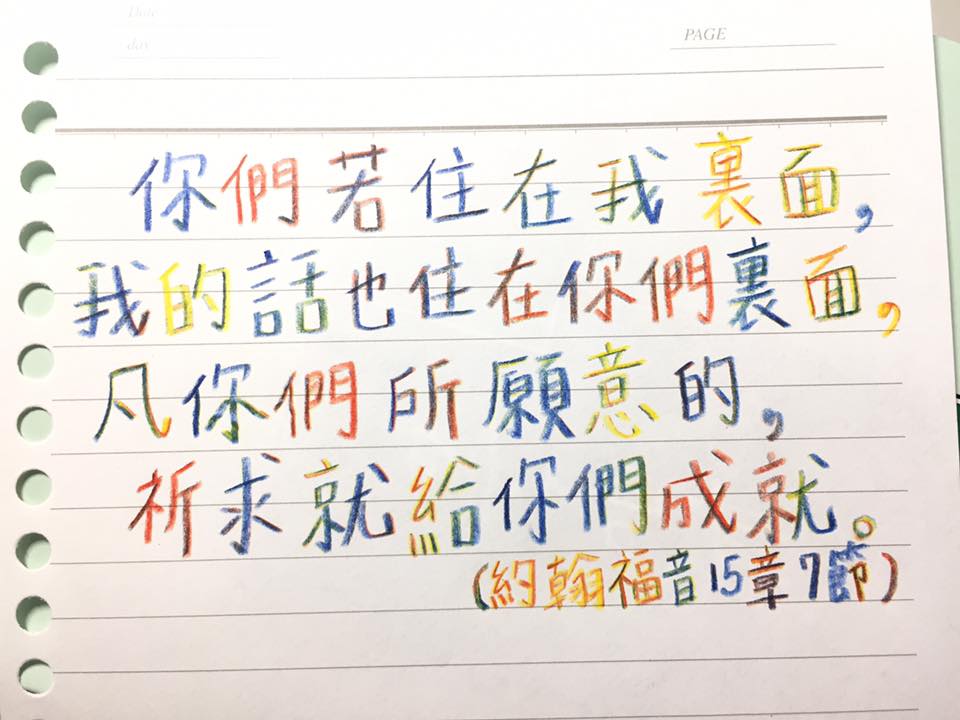 Date
day
PAGE
你們若住在我裏面,
我的話也住在你們裏面,
凡你們所願意的,
祈求就給你們成就。
(約翰福音15章7節)